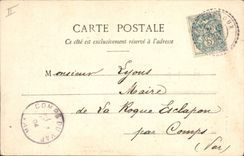 CARTE POSTALE
Ce côté est exclusivement réservé à l'adresse
Monsieur Lyons
Maire
de La Roque Esclapon
par Comps
(Var)